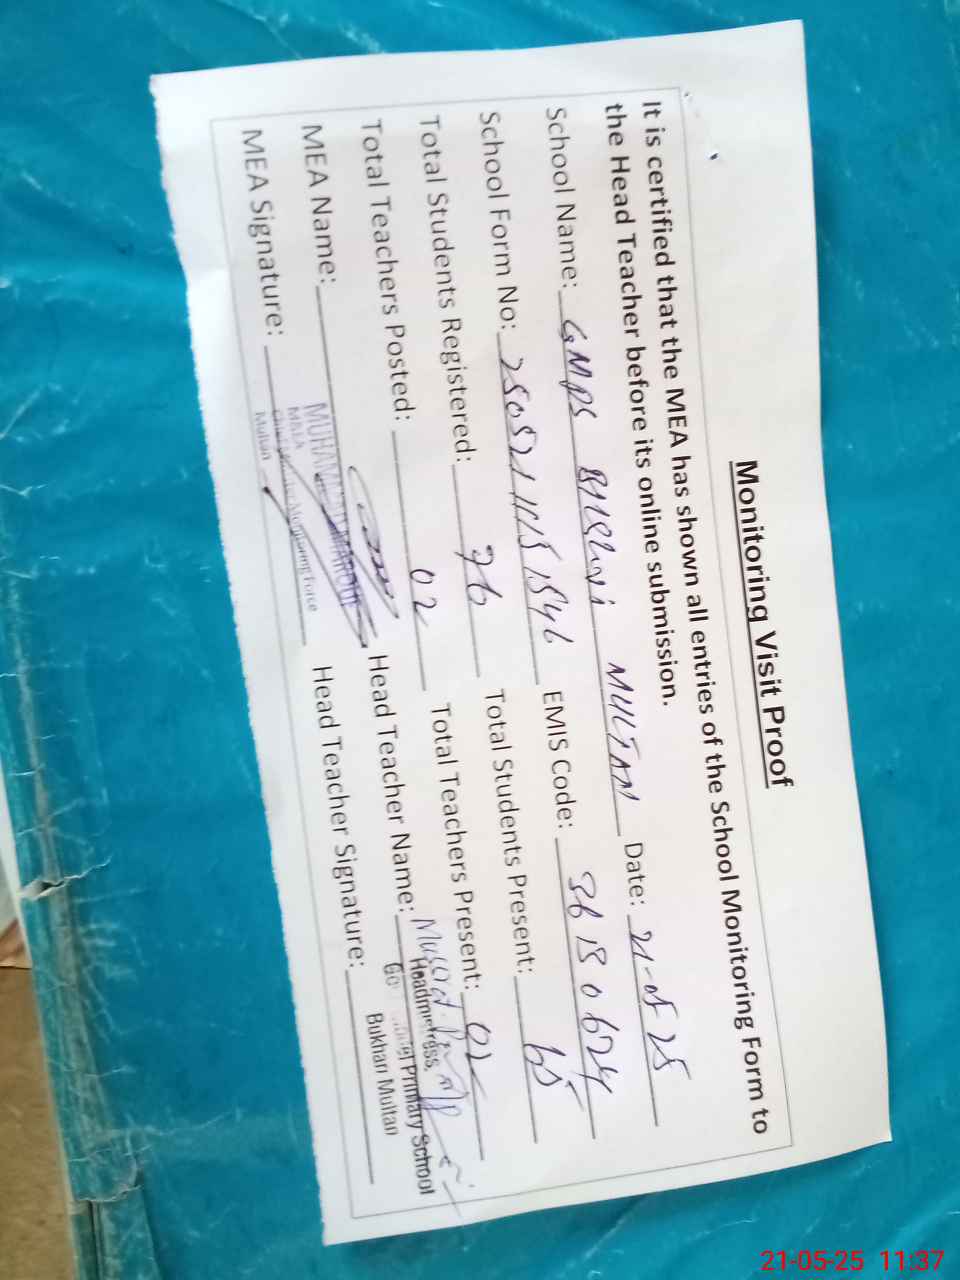 Monitoring Visit Proof
It is certified that the MEA has shown all entries of the School Monitoring Form to
the Head Teacher before its online submission.
School Name: GMPS MULTAN Date: 21-05 25
School Form No: EMIS Code: 36180624
Total Students Registered: 76 Total Students Present: 65
Total Teachers Posted: 02 Total Teachers Present: 02
MEA Name: MUHAMMAD MAROOF Head Teacher Name: Musarat
Headmistress.
MEA Signature: Head Teacher Signature:
M&EA
Monitoring Force
Multan
Model Primary School
Bukhari Multan
21-05-25 11:37